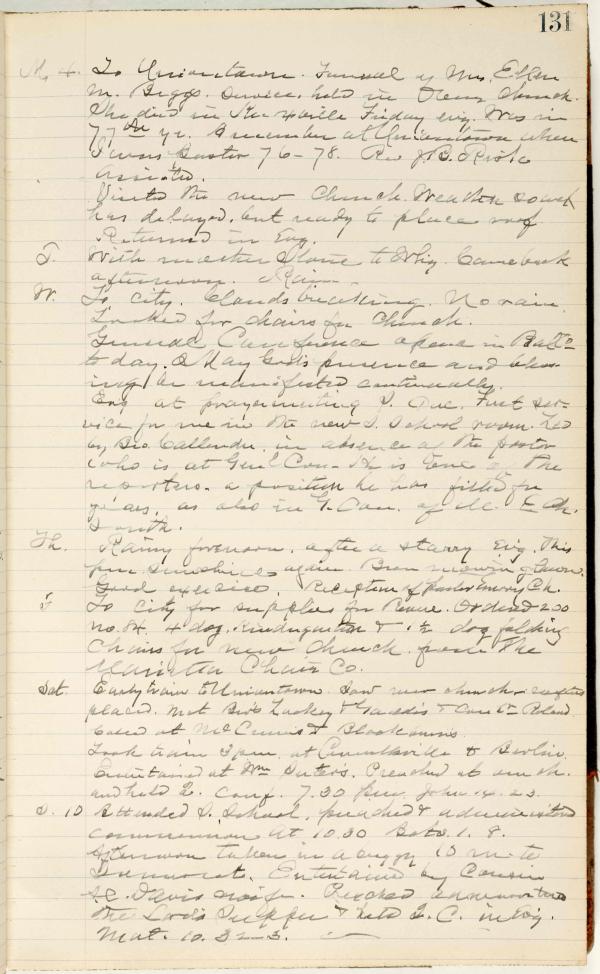 131
M. 4. To Uniontown. Funeral of Mrs. Ellen
M. Biggs. Service held in Church.
She died in Friday evg. Was in
77th yr. A member at Uniontown when
I was Pastor 76-78. Rev J.B.
assisted.
Visited the new Church. Weather so wet
has delayed, but ready to place roof.
Returned in Evg.
T. With mother to Came back
afternoon. Rain.
W. To city. Clouds breaking. No rain.
Looked for chairs for Church.
General Conference opens in Balto
to day. O May God's presence and bless-
ing be manifested continually.
Evg at prayermeeting First ser-
vice for me in the new S. School room. Led
by Bro. Callender, in absence of the pastor
who is at Genl Con. He is one of the
reporters. a position he has filled for
years, as also in G. Con. of M. E. Ch.
South.
Th. Rainy forenoon, after a starry Evg. This
pm sunshines again. Been mowing lawn.
Good exercise. Reception of pastor Emory Ch.
F To city for supplies for Ordered 200
No. 84 4 doz. Kindergarten & 1½ doz folding
Chairs for new Church from the
Marietta Chair Co.
Sat. Early train to Uniontown. Saw new church - rafters
placed. Met Bros Lackey & Gaddis &
Called at
Took train 3 pm. at & Berlin.
Entertained at Wm Preached at our ch.
and held Q. Conf. 7.30 pm. John 14. 23.
S. 10 Attended S. School, preached & administered
communion at 10.30 1. 8.
Afternoon taken in a buggy 10 m. to
Democrat. Entertained by Cousin
Davis & wife. Preached administered
the Lord's Supper & held Q. C. in Evg.
Mat. 10. 32-3.